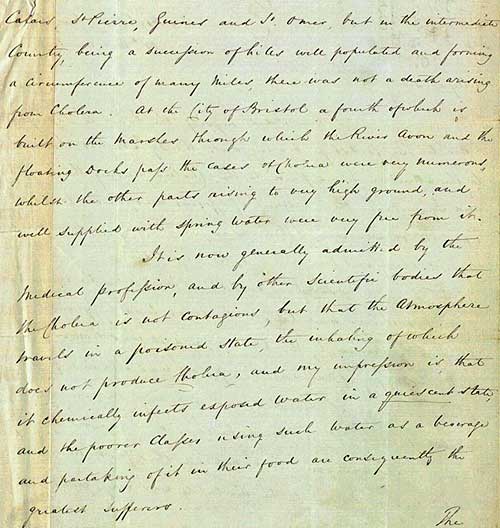 Calais, St Pierre, Guines and St. Omer, but in the intermediate
Country, being a succession of hills well populated and forming
a circumference of many Miles, there was not a death arising
from Cholera. At the City of Bristol a fourth of which is
built on the Marshes through which the River Avon and the
floating Docks pass the cases of Cholera were very numerous,
whilst the other parts rising to very high ground, and
well supplied with spring water were very free from it.
It is now generally admitted by the
Medical profession, and by other Scientific bodies that
the Cholera is not contagious, but that the Atmosphere
travels in a poisoned state, the inhaling of which
does not produce Cholera; and my impression is that
it chemically infects exposed water in a quiescent state,
and the poorer Classes using such water as a beverage
and partaking of it in their food are consequently the
greatest sufferers.
The